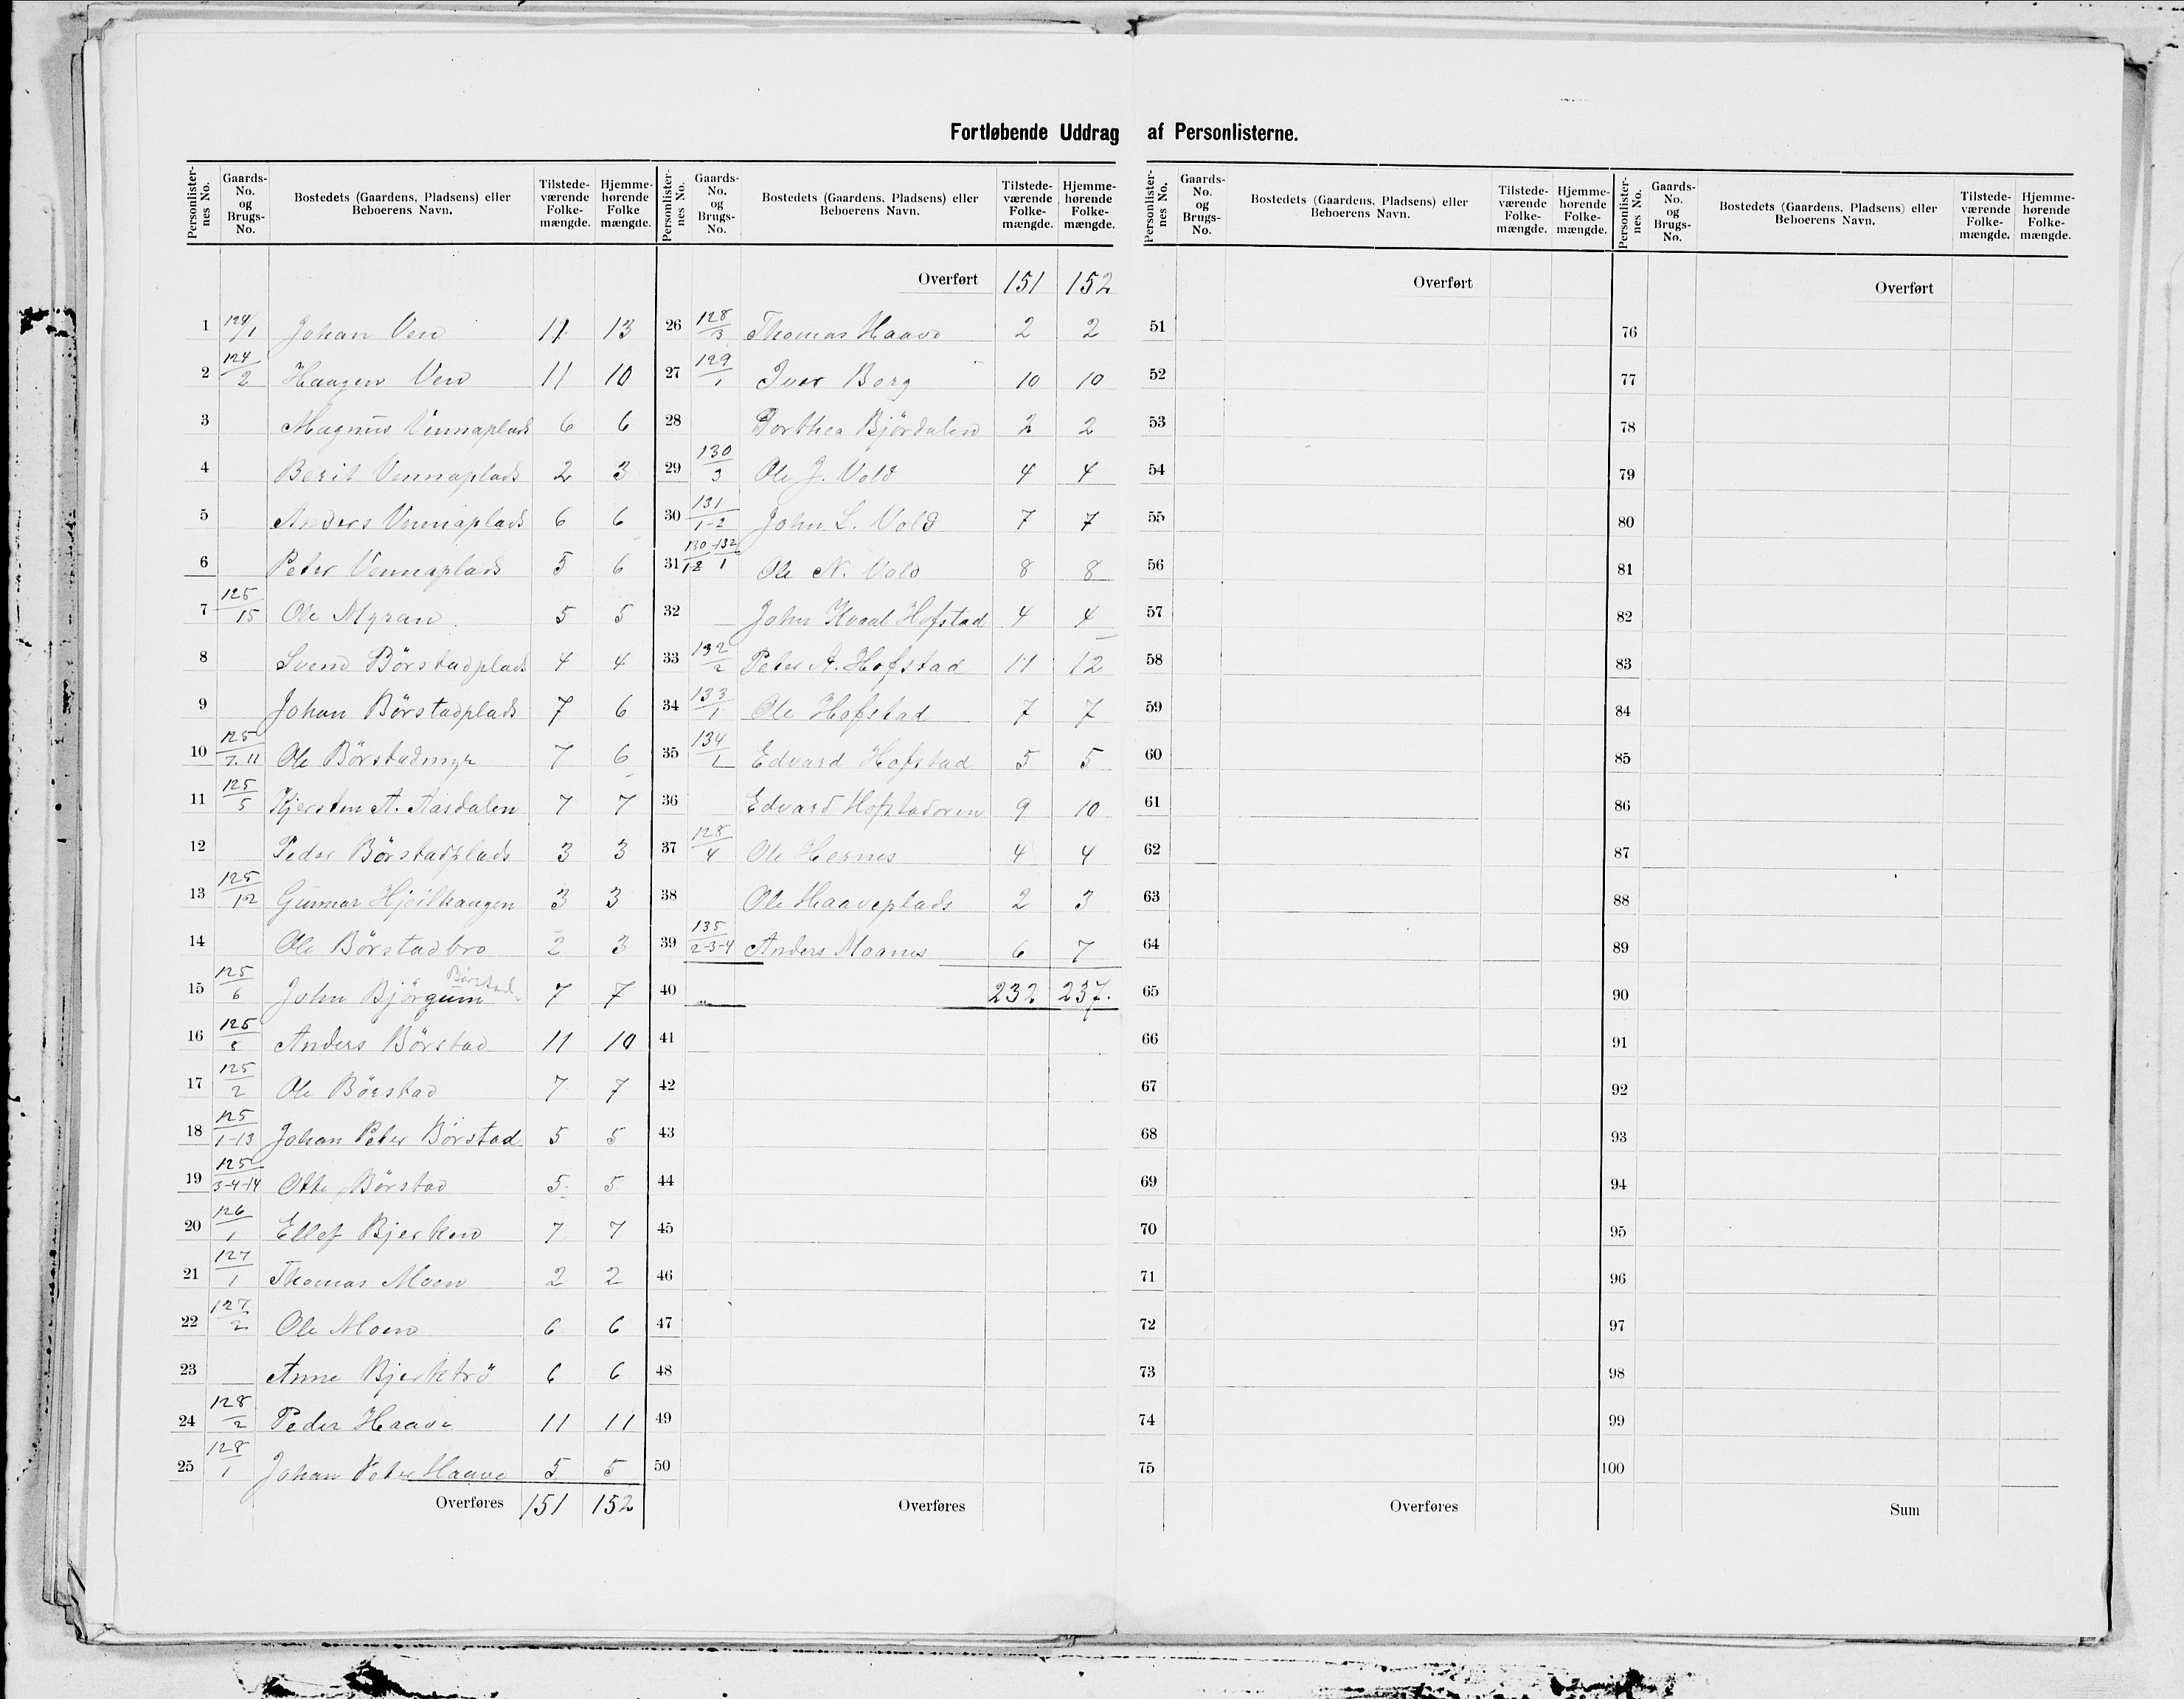 Fortløbende Uddrag af Personlisterne.
Personlisternes No. Gaards-No. og Brugs-No. Bostedets (Gaardens, Pladsens) eller Beboerens Navn. Tilstedeværende Folkemængde. Hjemmehørende Folkemængde.
1 124/1 Johan Ven 11 13
2 124/2 Haagen Ven 11 10
3 Magnus Vennaplads 6 6
4 Berit Vennaplads 2 3
5 Anders Vennaplads 6 6
6 Peter Vennaplads 5 6
7 125/15 Ole Myran 5 5
8 Svend Börstadplads 4 4
9 Johan Börstadplads 7 6
10 125/7.11 Ole Börstadmyr 7 6
11 125/5 Kjersten A. Aasdalen 7 7
12 Peder Börstadplads 3 3
13 125/12 Gunnar Hjeilhaugen 3 3
14 Ole Börstadbro 2 3
15 125/6 John Björgum Börstad 7 7
16 125/8 Anders Börstad 11 10
17 125/2 Ole Börstad 7 7
18 125/1-13 Johan Peter Börstad 5 5
19 125/3-4-14 Otte Börstad 5 5
20 126/1 Ellef Bjerken 7 7
21 127/1 Thomas Moen 2 2
22 127/2 Ole Moen 6 6
23 Anne Bjerktrö 6 6
24 128/2 Peder Haave 11 11
25 128/1 Johan Peter Haave 5 5
Overføres 151 152
Personlisternes No. Gaards-No. og Brugs-No. Bostedets (Gaardens, Pladsens) eller Beboerens Navn. Tilstedeværende Folkemængde. Hjemmehørende Folkemængde.
Overført 151 152
26 128/3 Thomas Haave 2 2
27 129/1 Iver Berg 10 10
28 Dorthea Björdalen 2 2
29 130/3 Ole J. Vold 4 4
30 131/1-2 John L. Vold 7 7
31 130/1-2 132/1 Ole N. Vold 8 8
32 John Kvaal Hofstad 4 4
33 132/2 Peter A. Hofstad 11 12
34 133/1 Ole Hofstad 7 7
35 134/1 Edvard Hofstad 5 5
36 Edvard Hofstadoren 9 10
37 128/4 Ole Hernes 4 4
38 Ole Haaveplads 2 3
39 135/2-3-4 Anders Moanes 6 7
40 232 237.
41
42
43
44
45
46
47
48
49
50
Overføres
Personlisternes No. Gaards-No. og Brugs-No. Bostedets (Gaardens, Pladsens) eller Beboerens Navn. Tilstedeværende Folkemængde. Hjemmehørende Folkemængde.
Overført
51
52
53
54
55
56
57
58
59
60
61
62
63
64
65
66
67
68
69
70
71
72
73
74
75
Overføres
Personlisternes No. Gaards-No. og Brugs-No. Bostedets (Gaardens, Pladsens) eller Beboerens Navn. Tilstedeværende Folkemængde. Hjemmehørende Folkemængde.
Overført
76
77
78
79
80
81
82
83
84
85
86
87
88
89
90
91
92
93
94
95
96
97
98
99
100
Sum